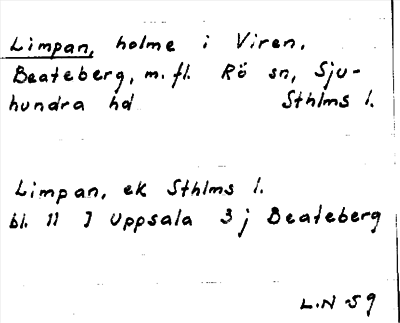 Limpan, holme i Viren.
Beateberg, m.fl. Rö sn, Sju-
hundra hd Sthlms l.
Limpan, ek Sthlms l.
bl. 11 J Uppsala 3 j Beateberg
L.N 59